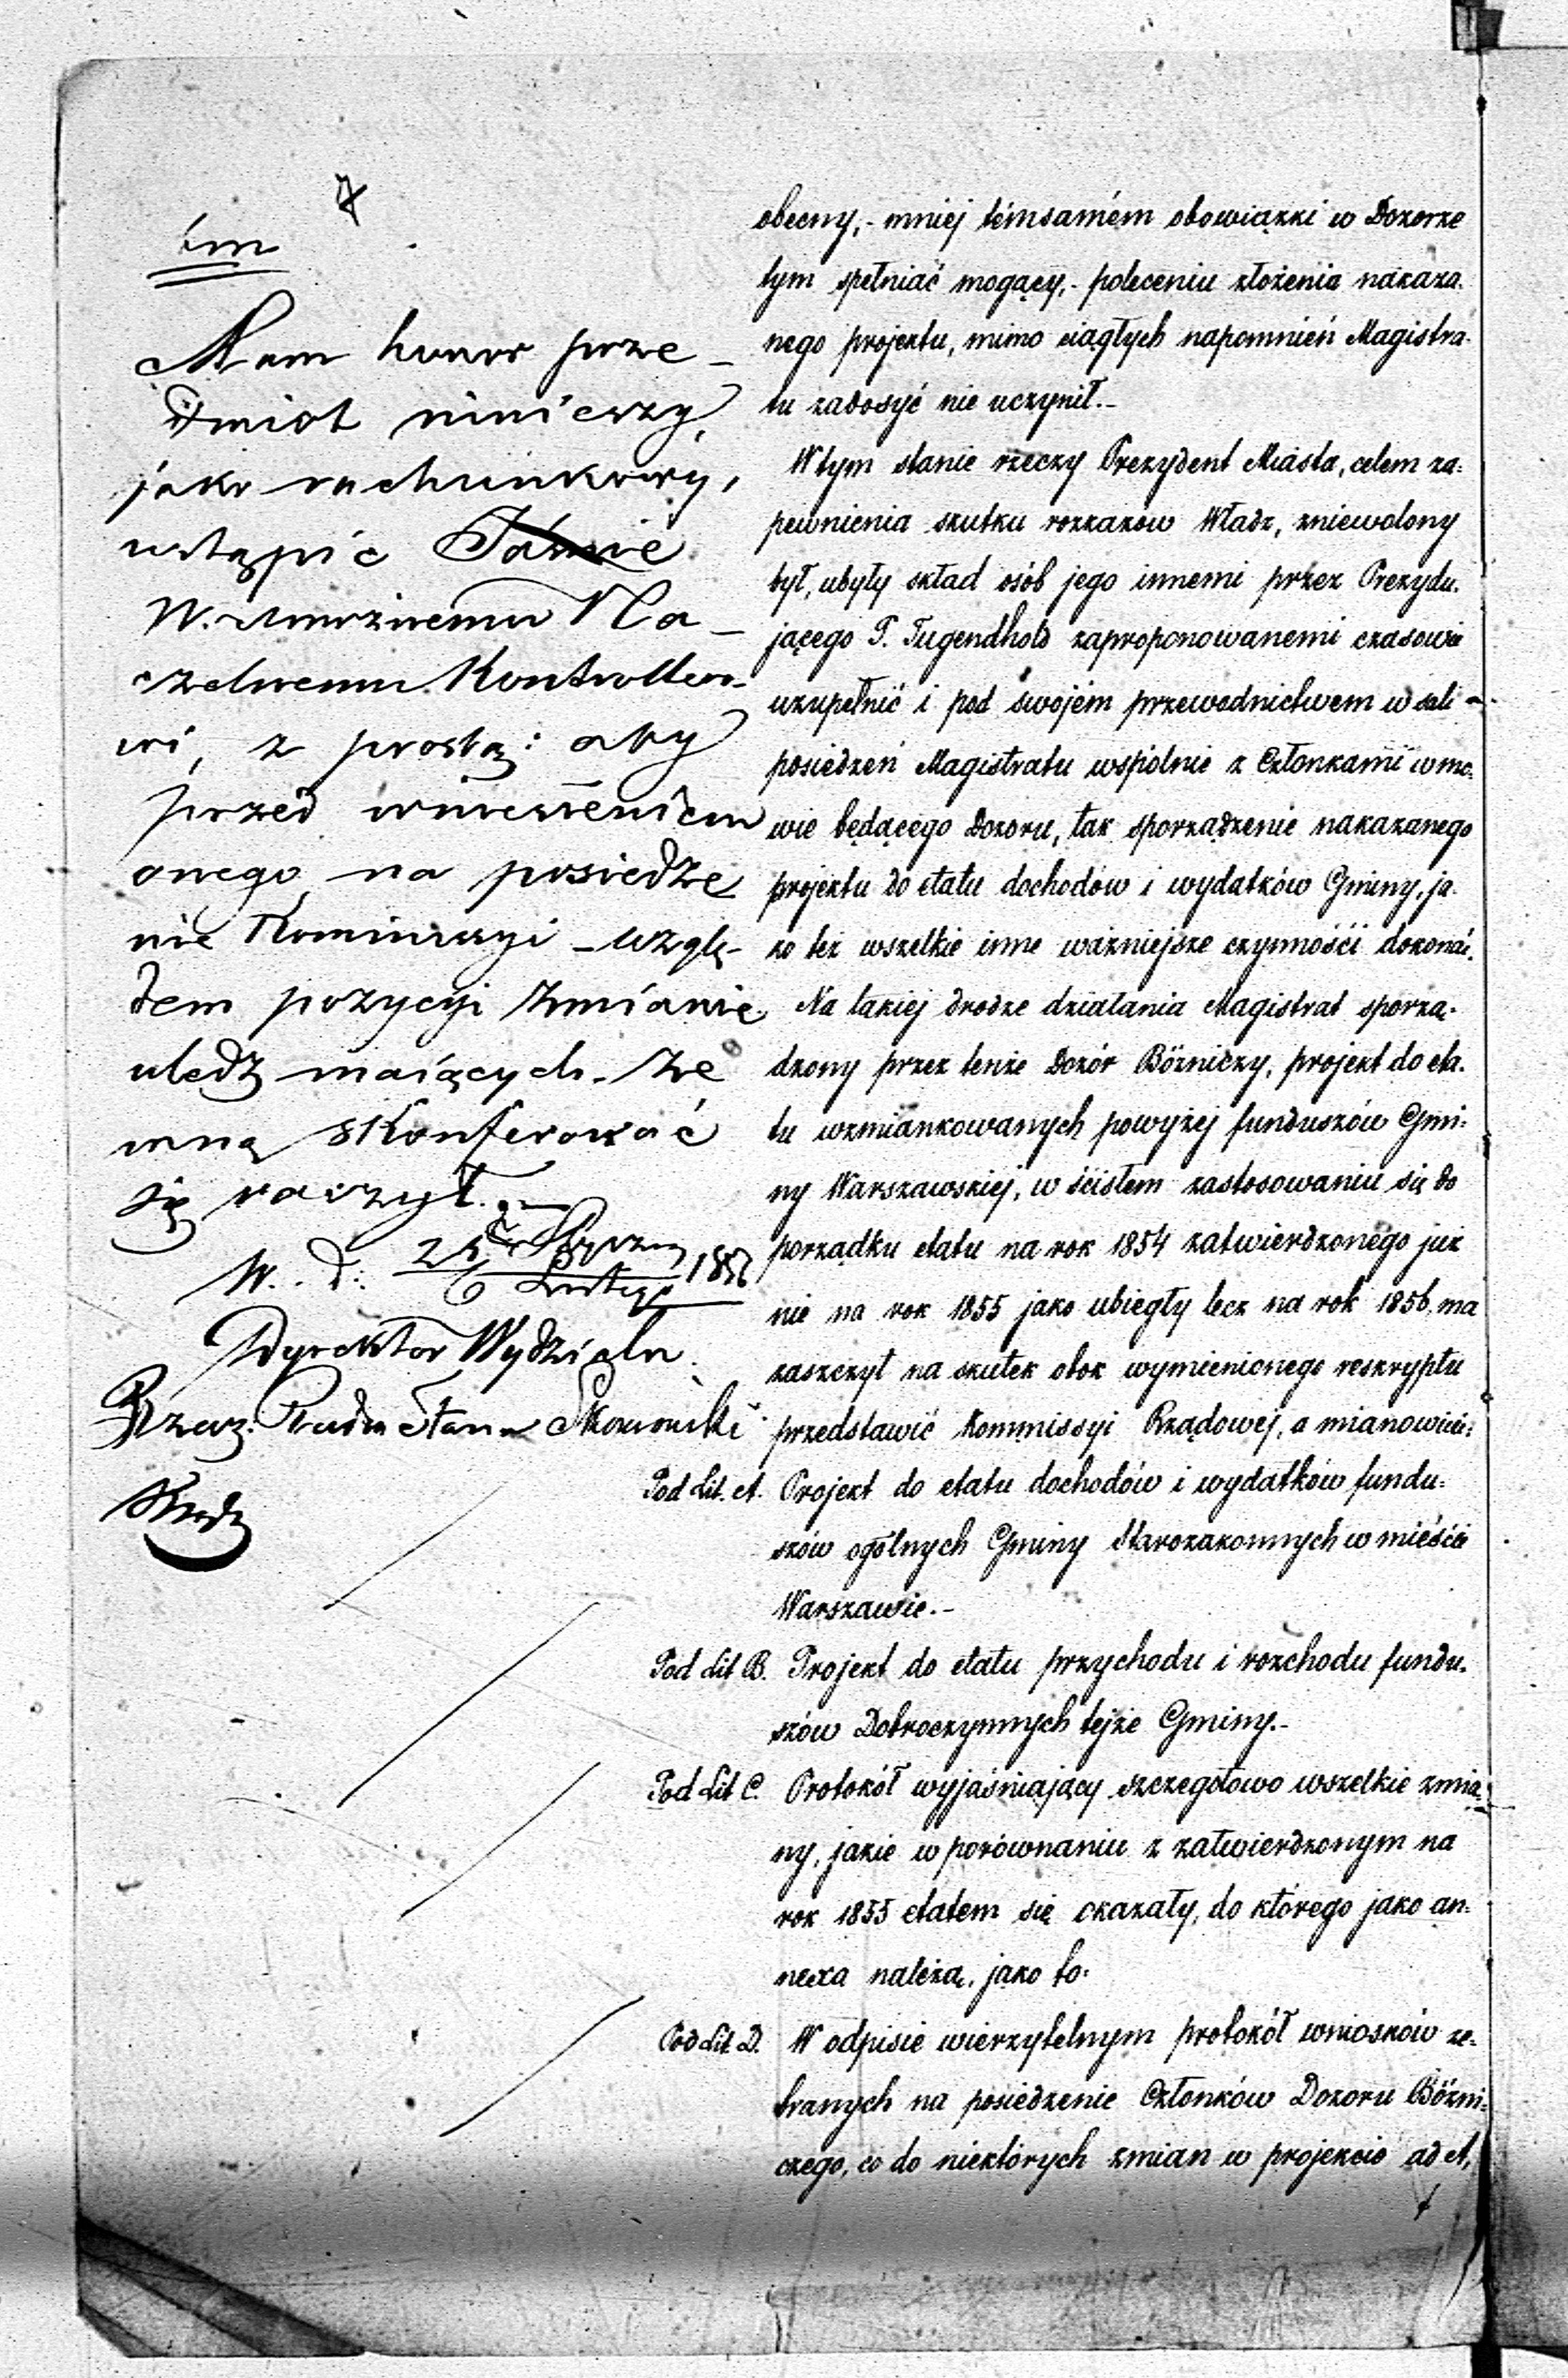 7
Mam honor prze-
dmiot niniejszy,
jako rachunkowy,
ustąpić
W. Na-
czelnemu Kontrollero-
wi, z prośbą: aby
przed wniesieniem
onego, na posiedze
nie Kommissyi – wzglę-
dem pozycyi zmianie
uledz maiących - ze
mną skonferować
się raczył.
W. d: 25 Stycznia
6 Lutego 1856
Dyrektor Wydziału
Rzecz: Radca Stanu
obecny,- mniej témsamém obowiązki w Dozorze
tym spełniać mogący,- poleceniu złożenia nakaza-
nego projektu, mimo ciągłych napomnień Magistra-
tu zadosyć nie uczynił.-
W tym stanie rzeczy Prezydent Miasta, celem za-
pewnienia skutku rozkazów Władz, zniewolony
był, ubyły skład osób jego innemi przez Prezydu-
jącego P. Tugendhold zaproponowanemi czasowie
uzupełnić i pod swojém przewodnictwem w sali -
posiedzeń Magistratu wspólnie z Członkami w mo-
wie będącego Dozoru, tak sporządzenie nakazanego
projektu do etatu dochodów i wydatków Gminy, ja-
ko też wszelkie inne ważniejsze czynności dokonać.
Na takiej drodze działania Magistrat sporzą-
dzony przez tenże Dozór Bóżniczy, projekt do eta-
tu wzmiankowanych powyżej funduszów Gmi-
ny Warszawskiej, w ścisłem zastosowaniu się do
porządku etatu na rok 1854 zatwierdzonego już
nie na rok 1855 jako ubiegły lecz na rok 1856, ma
zaszczyt na skutek obok wymienionego reskryptu
przedstawić Kommissyi Rządowej, a mianowicie:
Pod Lit. A. Projekt do etatu dochodów i wydatków fundu-
szów ogólnych Gminy Starozakonnych w mieście
Warszawie.-
Pod Lit B. Projekt do etatu przychodu i rozchodu fundu-
szów Dobroczynnych tejże Gminy.-
Pod Lit C. Protokół wyjaśniający szczegółowo wszelkie zmia-
ny, jakie w porównaniu z zatwierdzonym na
rok 1855 etatem się okazały, do którego jako an-
nexa należą, jako to:
Pod Lit. D. W odpisie wierzytelnym protokół wniosków ze-
branych na posiedzenie Członków Dozoru Bóżni-
czego, co do niektórych zmian w projekcie ad A,